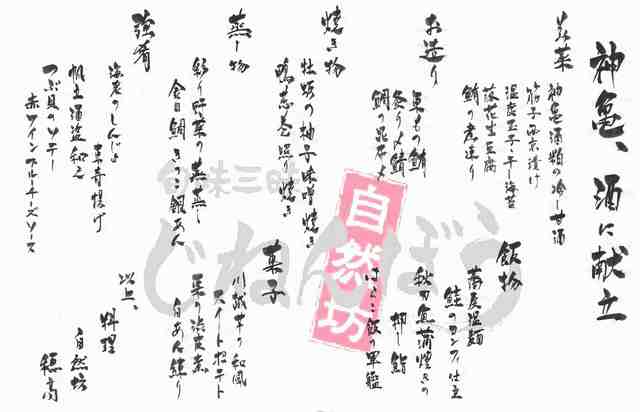 神亀、酒に献立
前菜
神亀酒粕の冷し甘酒
筋子西京漬け
温度玉子干し海苔
落花生豆腐
鮪の煮凍り
お造り
生もの鮪
炙り〆鯖
鯛の昆布〆
焼き物
牡蛎の柚子味噌焼き
鴨葱巻照り焼き
蒸し物
彩り野菜の蒸蒸し
金目鯛きのこ銀あん
強肴
海老のしんじょ
東寺揚げ
帆立酒盗和え
つぶ貝のソテー
赤ワインブルーチーズソース
飯物
稲庭温麺
鮭のコンフィ仕立
秋刀魚蒲焼きの
押し鮨
はらこ飯の軍艦
菓子
川越芋の和風
スイートポテト
栗の渋皮煮
白あん練り
以上、
料理
自然坊
旬味三昧
じねんぼう
自然坊